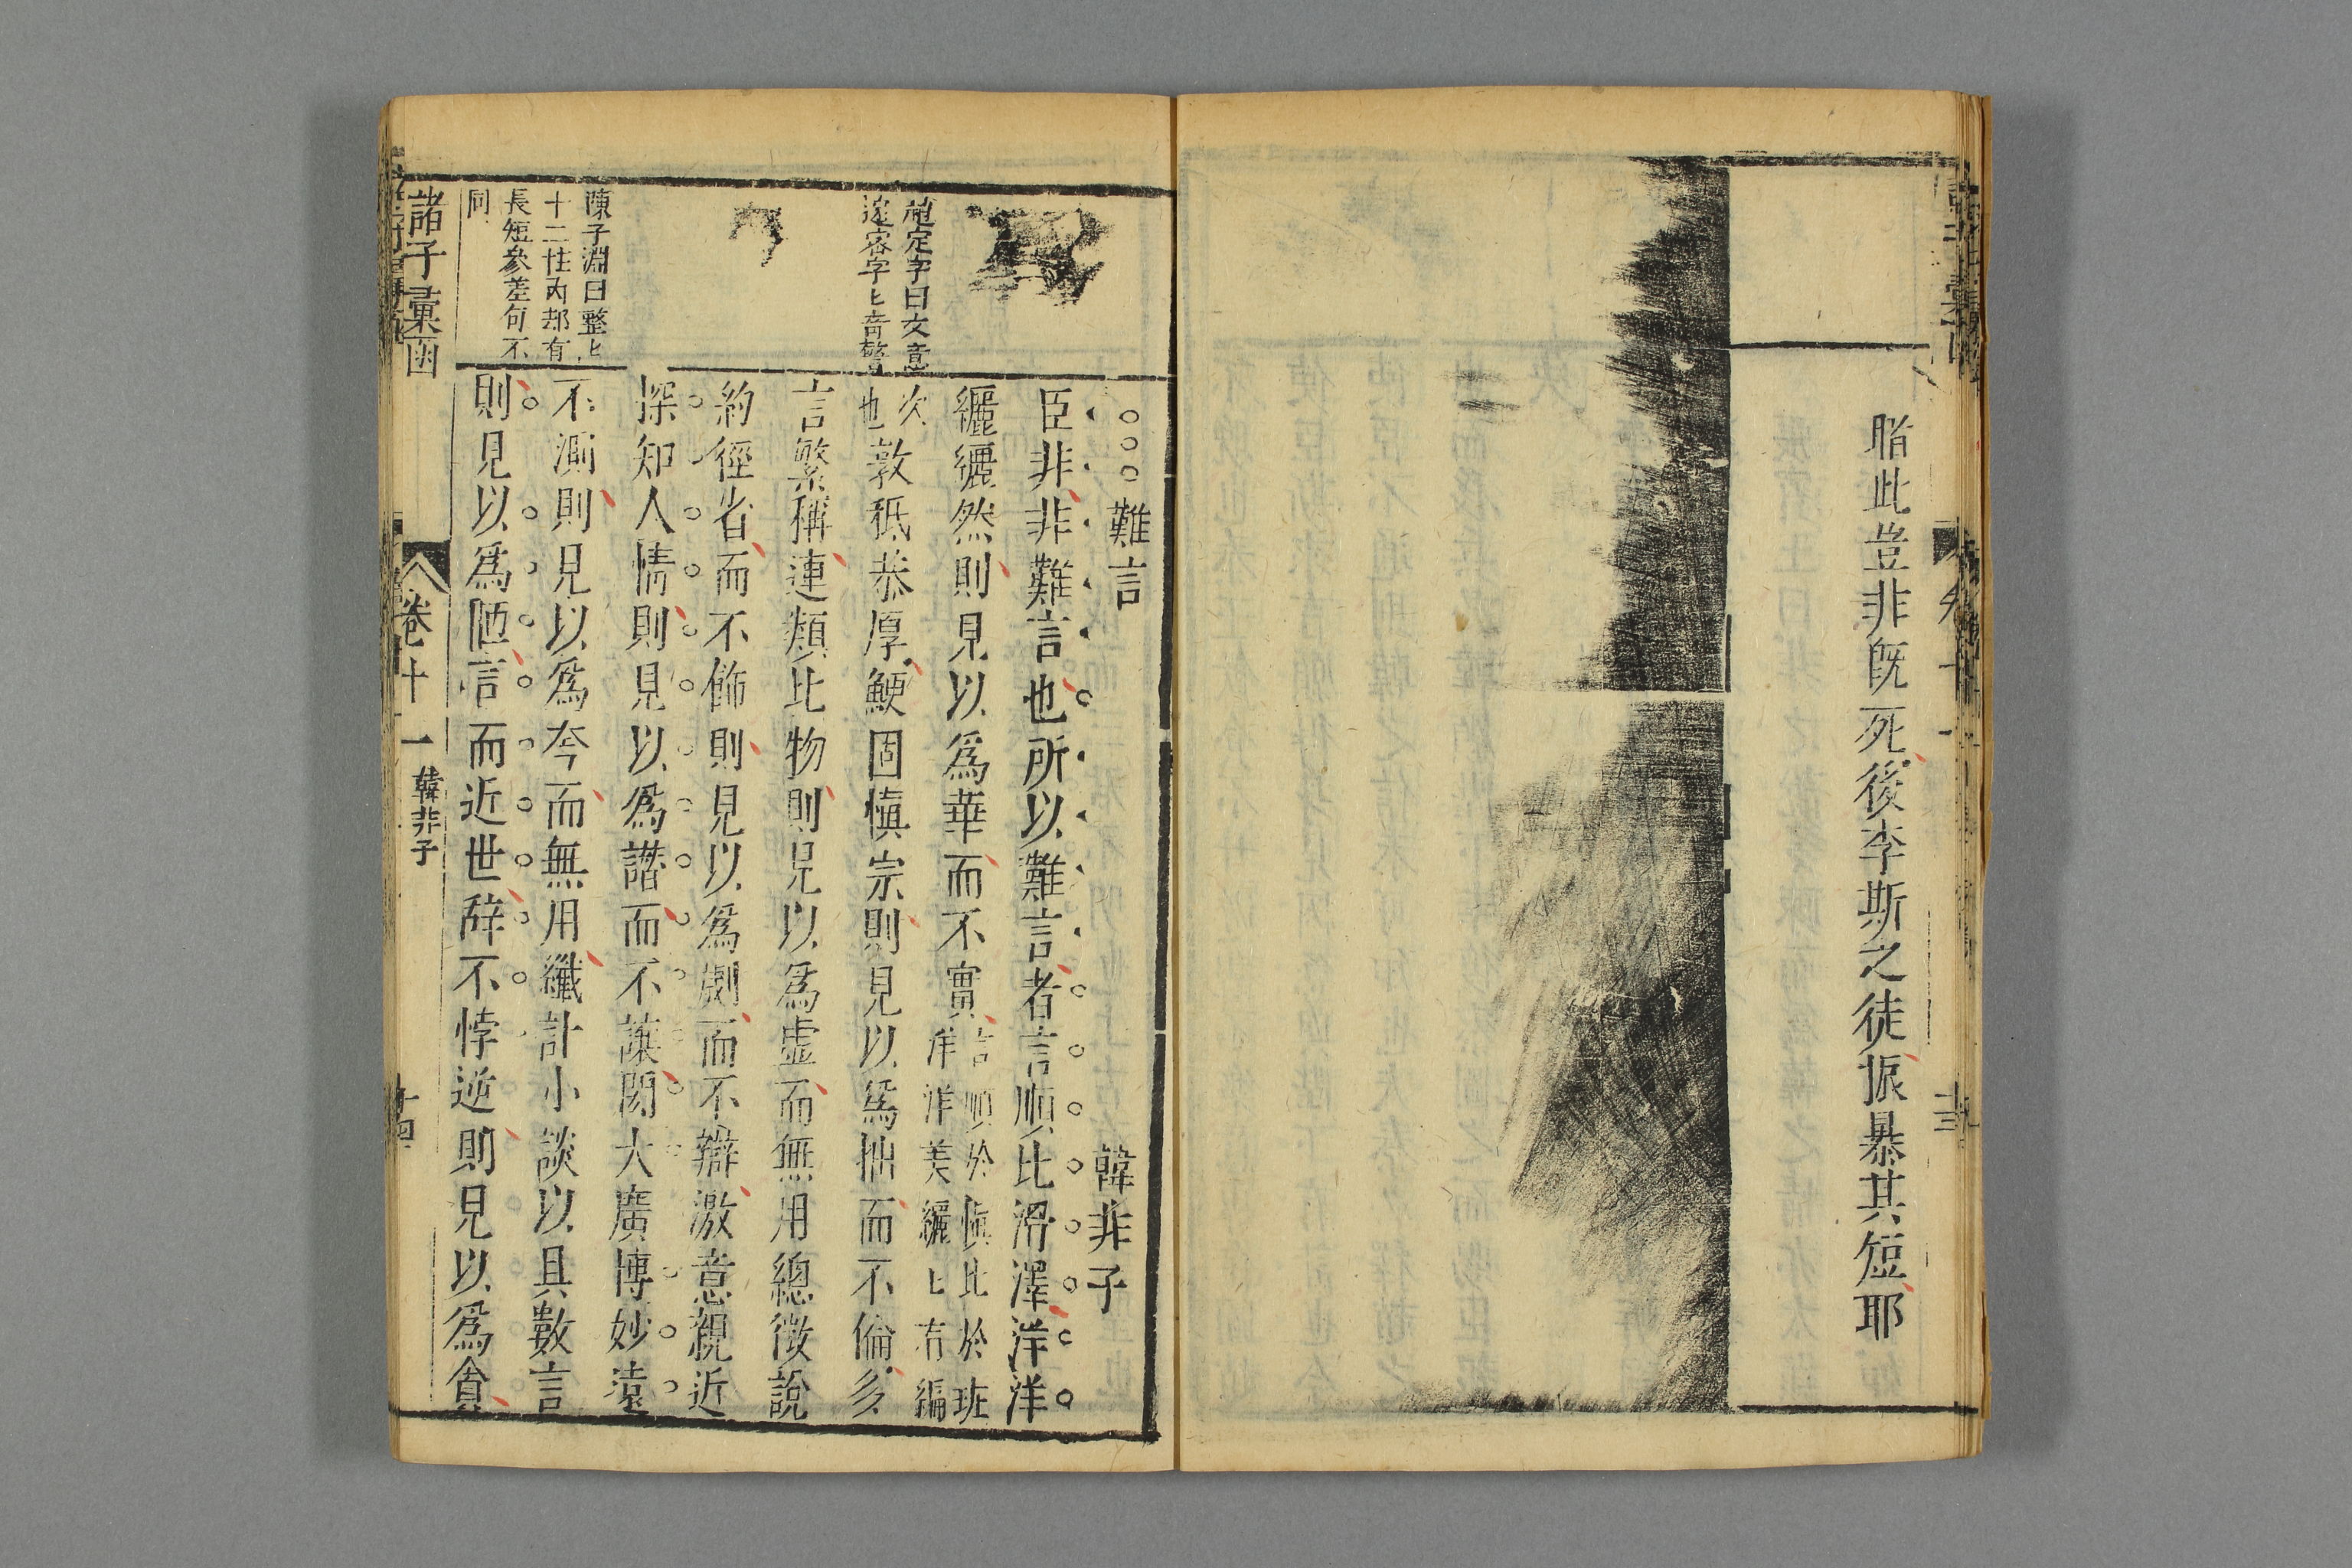 脂此豈非既死後李斯之徒振暴其短耶
難言 韓非子
臣非非難言也所以難言者言順比滑澤洋洋
纚纚然則見以爲華而不實言順於愼比於班
洋洋美纚匕有編
次
也敦秪恭厚鯁固愼宗則見以爲拙而不倫多
言繁稱連類比物則見以爲虛而無用總微說
約徑省而不飾則見以爲劌而不辯激意親近
探知人情則見以爲譖而不讓閎大廣博妙遠
不測則見以爲夸而無用纖計小談以具數言
則見以爲陋言而近世辭不悖逆則見以爲貪
趙定宇曰文意
字匕奇
陳子淵曰整匕
十二柱內却有
長短參差句不
同
諸子彙函
卷十一
韓非子
十四